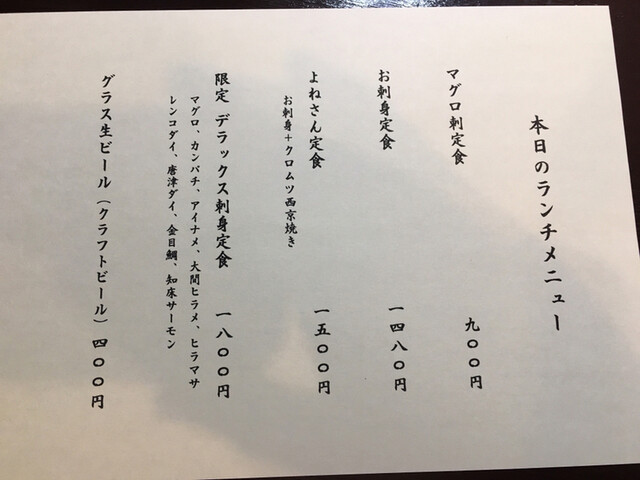 本日のランチメニュー
マグロ刺定食 九〇〇円
お刺身定食 一四八〇円
よねさん定食 一五〇〇円
お刺身+クロムツ西京焼き
限定 デラックス刺身定食 一八〇〇円
マグロ、カンパチ、アイナメ、大間ヒラメ、ヒラマサ
レンコダイ、唐津ダイ、金目鯛、知床サーモン
グラス生ビール(クラフトビール) 四〇〇円